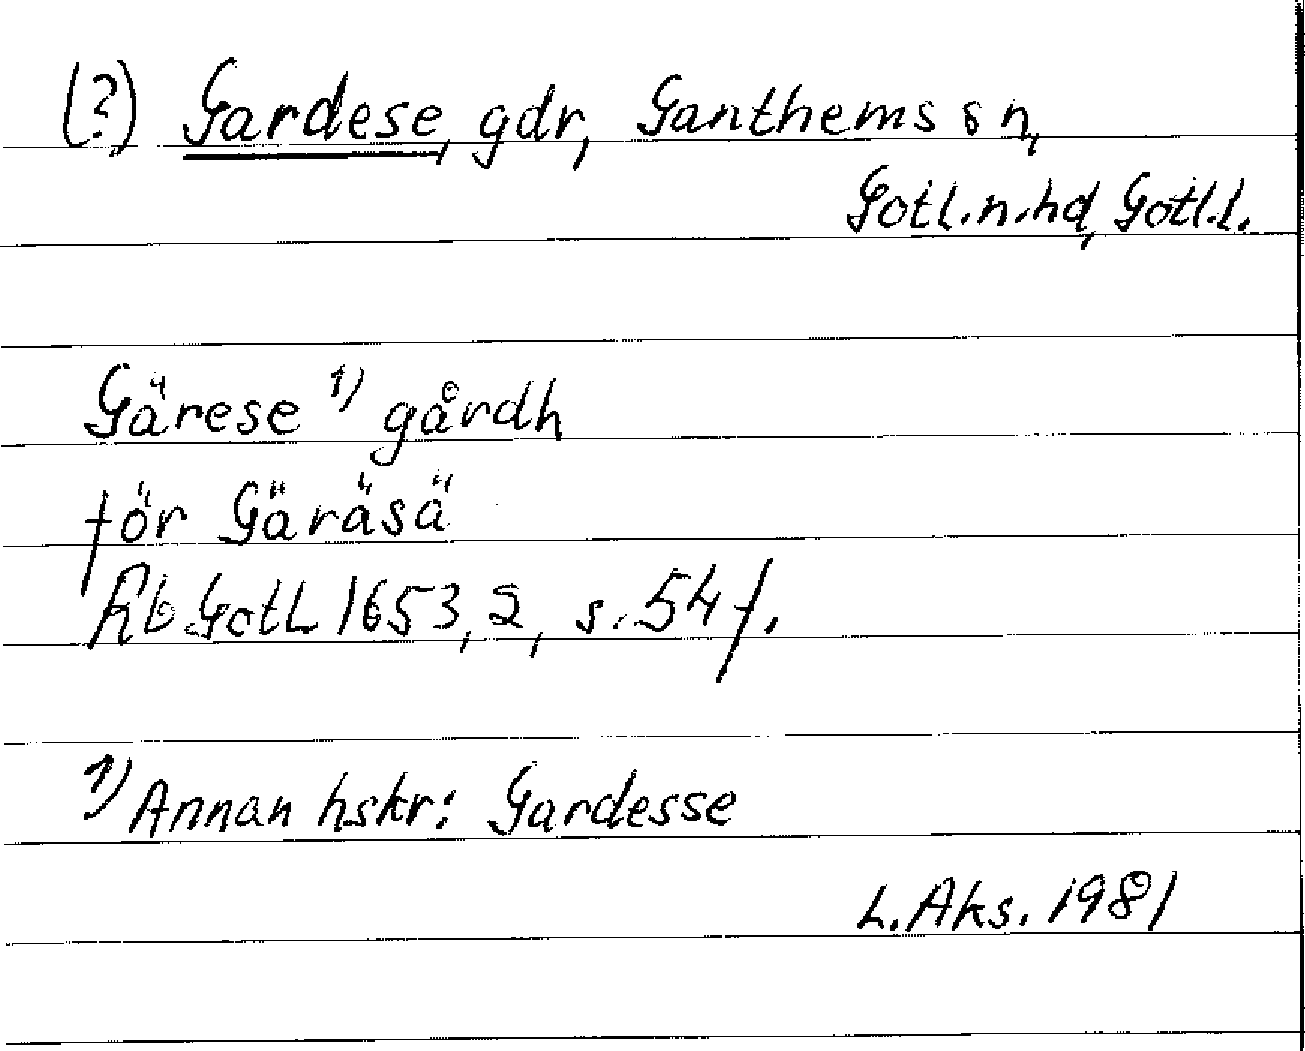 (?) Gardese, gdr, Ganthems sn,
Gotl.n.hd, Gotl.l.
Gärese 1) gårdh
för Gäräsä
Rb Gotl 1653, 2, s. 54 f.
1) Annan hskr: Gardesse
L. Aks. 1981